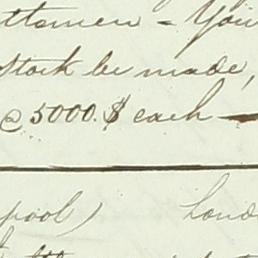 ttemen - You
stock be made,
@ 5000.$ each —
pool) Lond